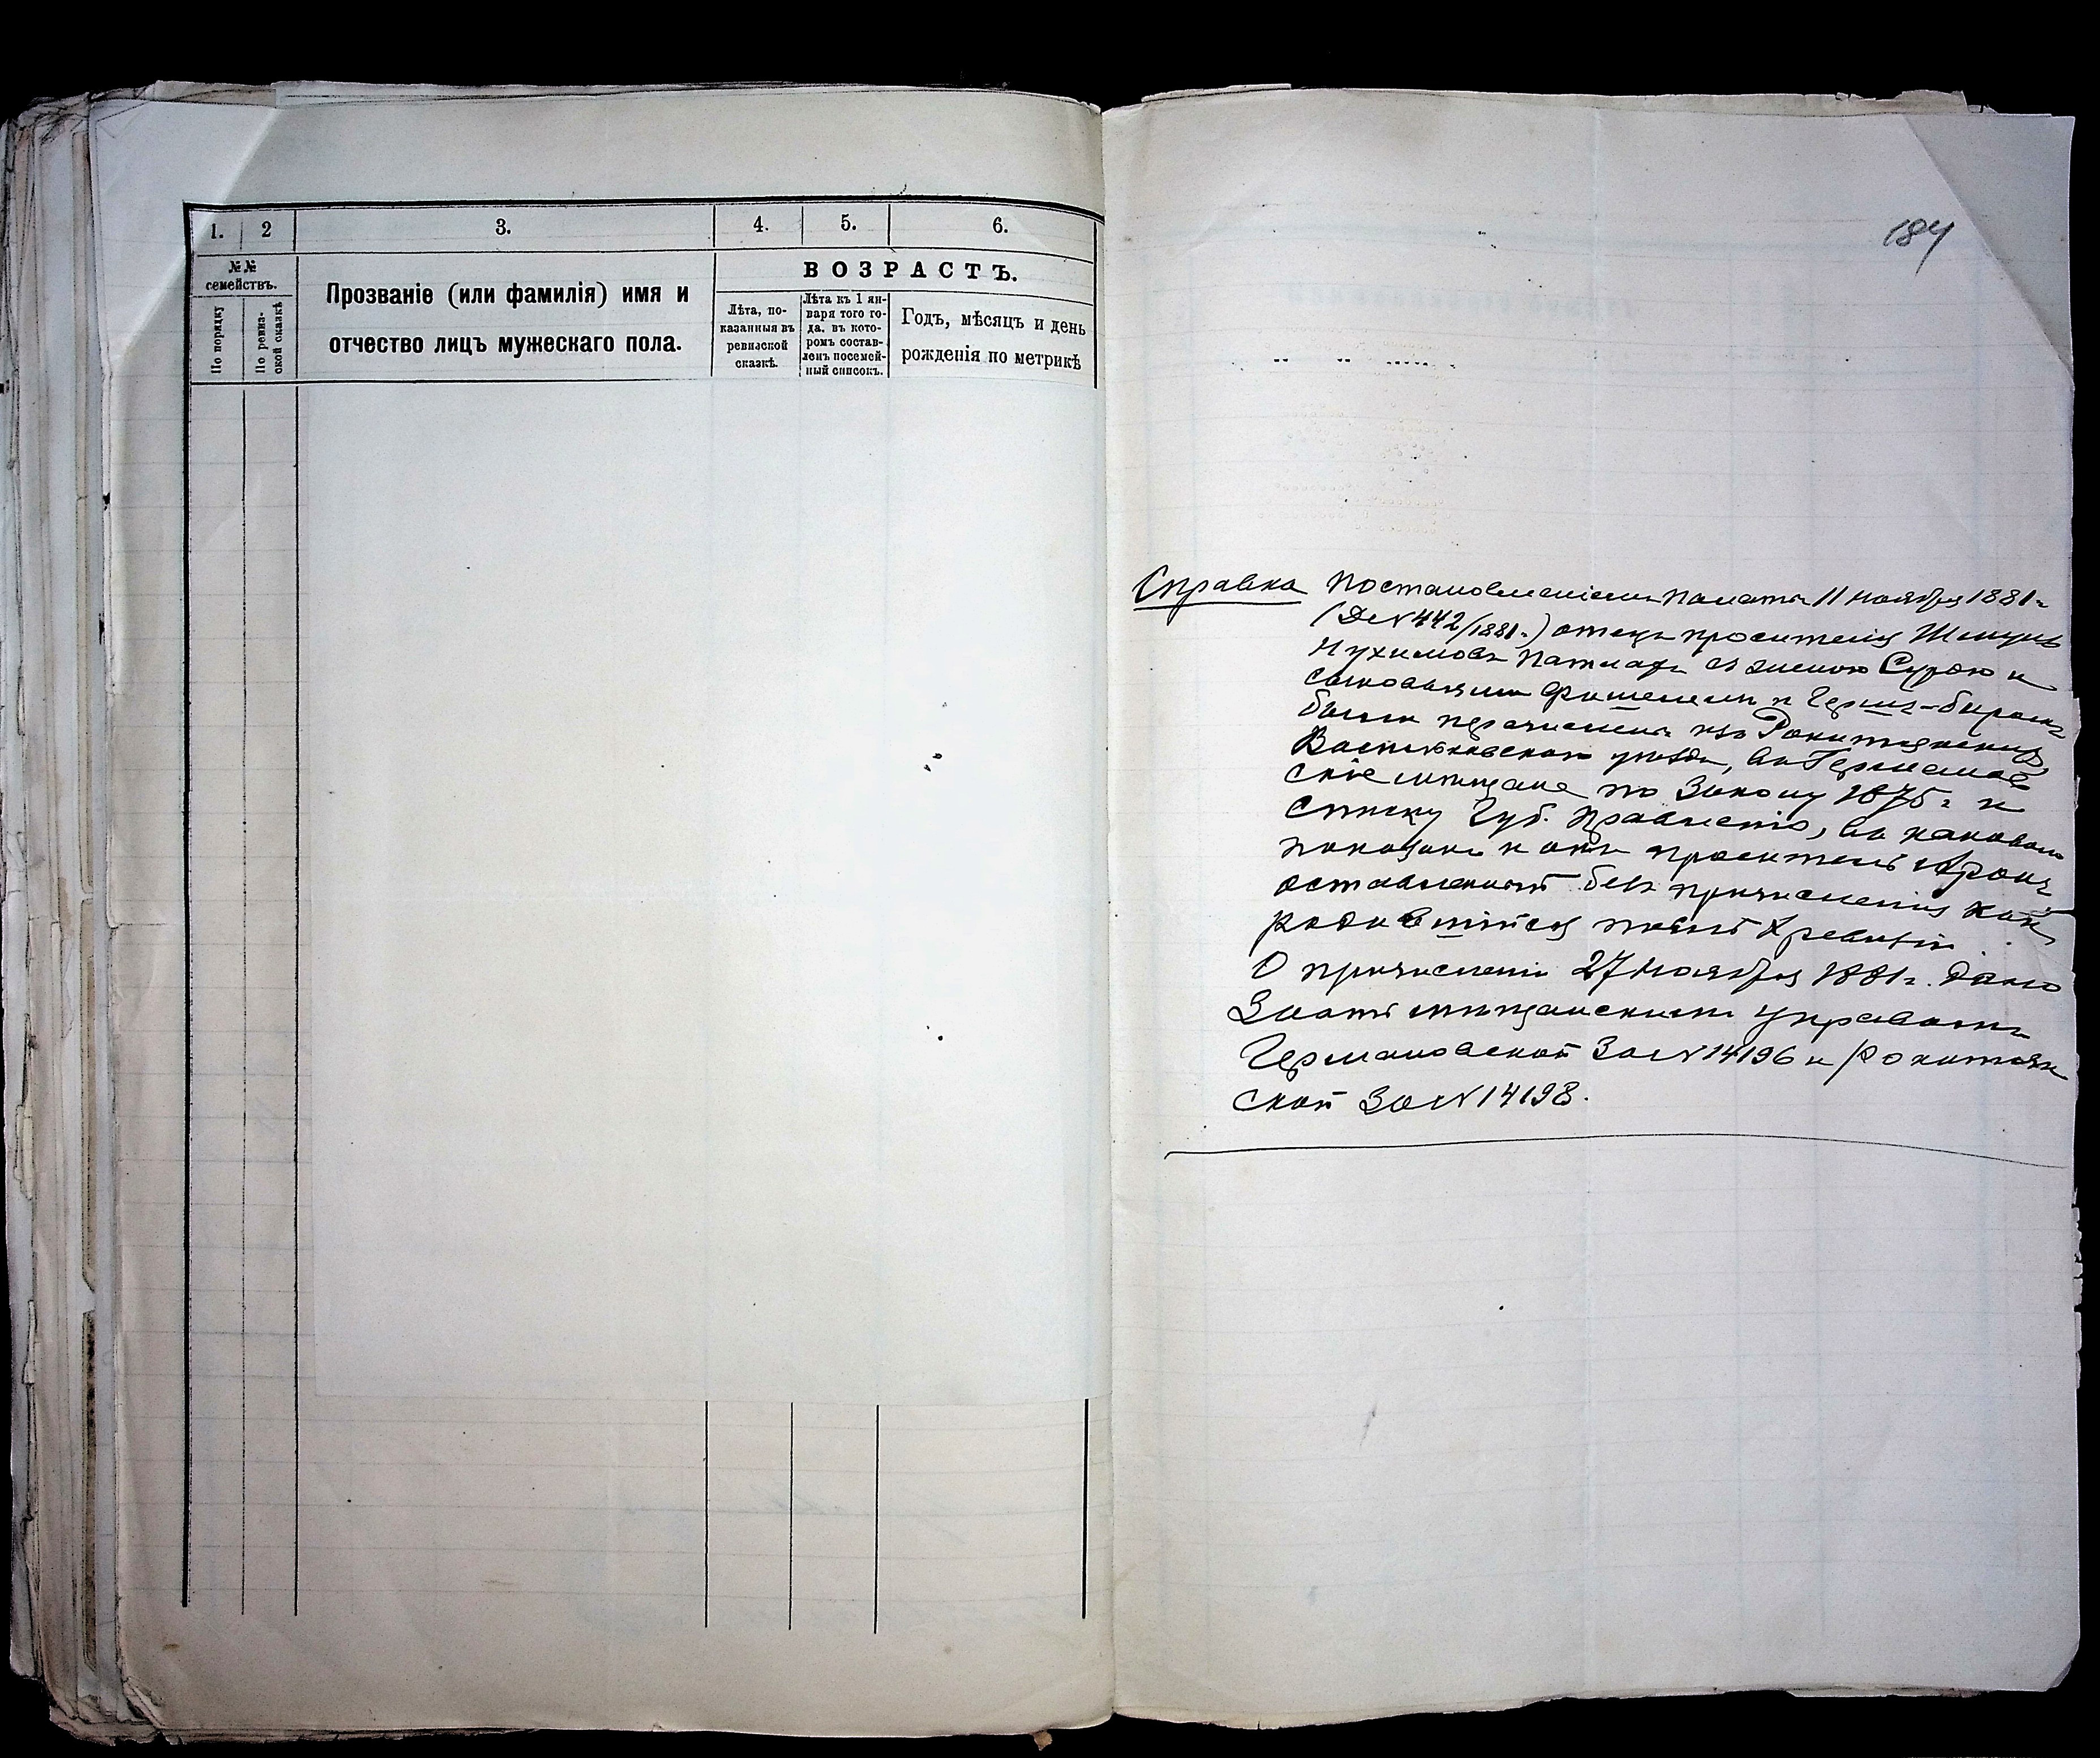 1. 2 3. 4. 5. 6.
№№ семействъ.
По порядку
По ревиз-
ской сказкѣ
Прозваніе (или фамилія) имя и
отчество лицъ мужескаго пола.
ВОЗРАСТЪ.
Лѣта, по-
казанныя въ
ревизской
сказкѣ.
Лѣта къ 1 ян-
варя того го-
да, въ кото-
ромъ состав-
ленъ посемей-
ный списокъ.
Годъ, мѣсяцъ и день
рожденія по метрикѣ
184
Справка Постановленіемъ Палаты 11 ноября 1881 г.
(Д. № 442/1881 г.) отецъ просителя Шмуль
Нухимовъ Патлахъ съ женою Сурою и
сыновьями Фишелемъ и Герш-Беромъ
были перечислены изъ Рокитянскихъ,
Васильковскаго уѣзда, въ Германов
скіе мѣщане по Закону 1875 г. и
списку Губ. Правленія, въ каковомъ
показанъ и онъ проситель Аронъ
оставленный безъ причисленія какъ
родившійся послѣ X ревизіи.
О причисленіи 27 Ноября 1881 г. дано
знать мѣщанскимъ управамъ
Германовской за № 14196 и Рокитян
ской за № 14198.